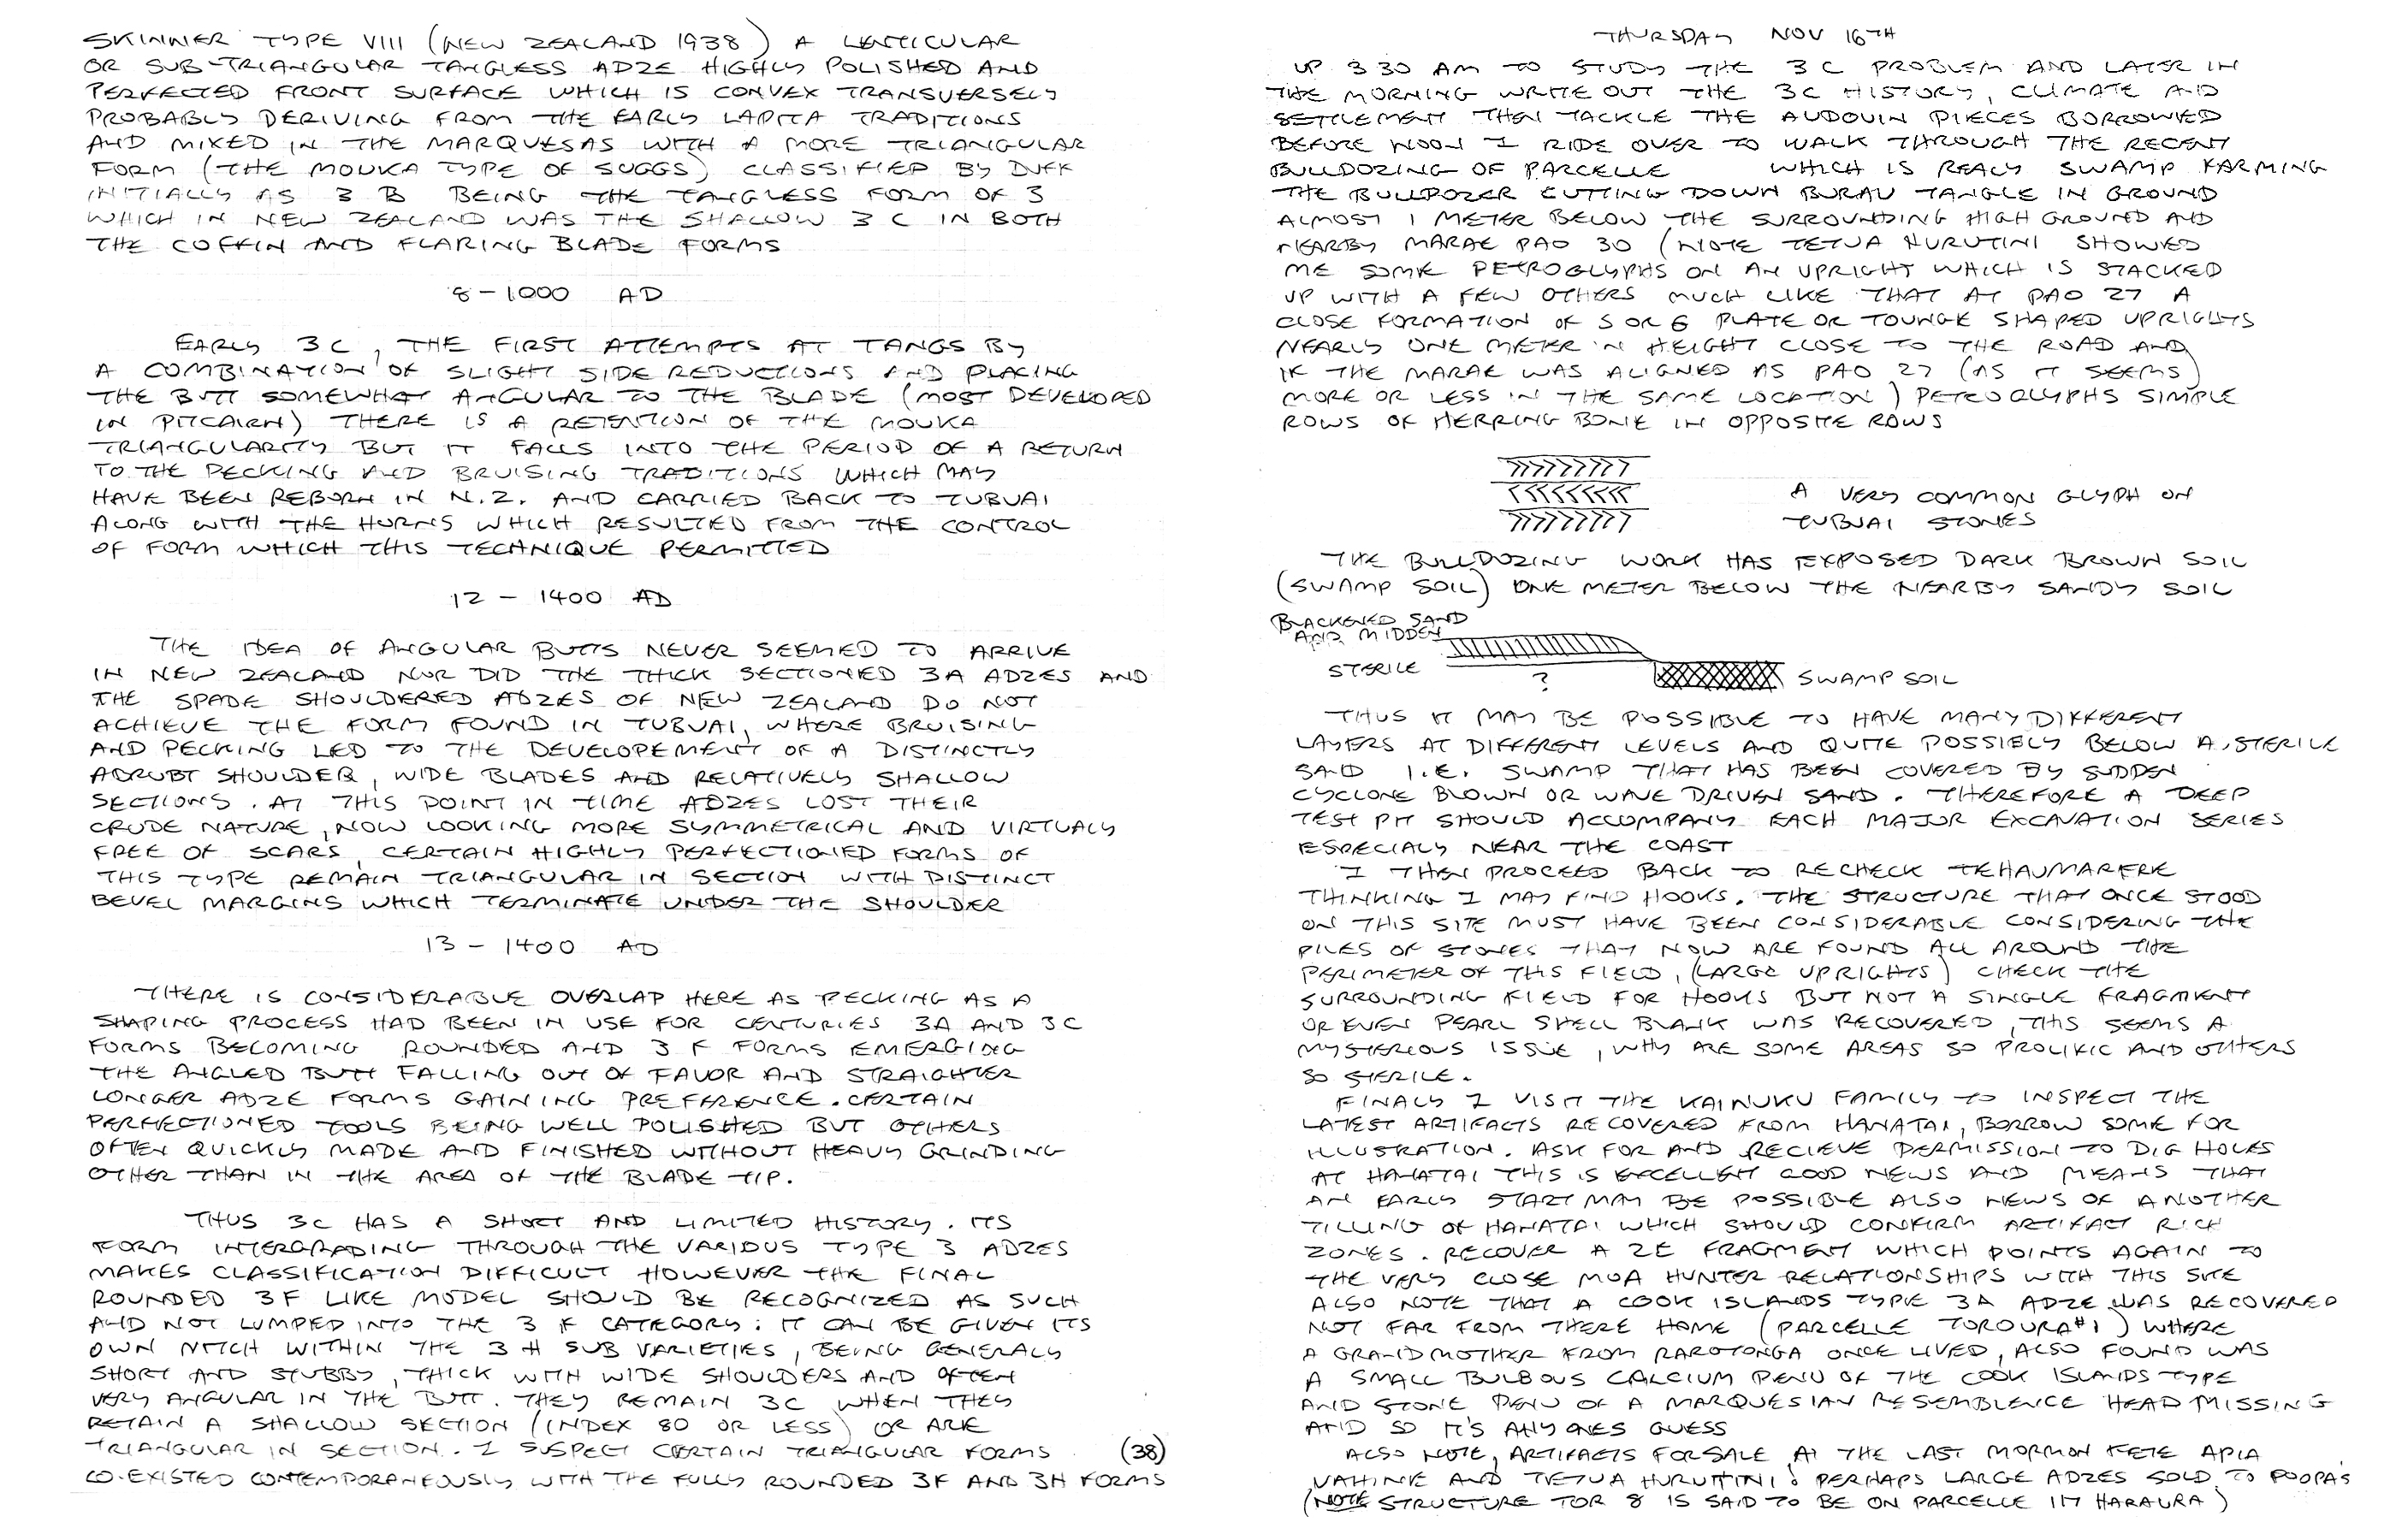 SKINNER TYPE VIII (NEW ZEALAND 1938) A LENTICULAR
OR SUB-TRIANGULAR TANGLESS ADZE HIGHLY POLISHED AND
PERFECTED FRONT SURFACE WHICH IS CONVEX TRANSVERSELY
PROBABLY DERIVING FROM THE EARLY LAPITA TRADITIONS
AND MIXED IN THE MARQUESAS WITH A MORE TRIANGULAR
FORM (THE MOUKA TYPE OF SUGGS) CLASSIFIED BY DUFF
INITIALLY AS 3 B BEING THE TANGLESS FORM OF 3
WHICH IN NEW ZEALAND WAS THE SHALLOW 3 C IN BOTH
THE COFFIN AND FLARING BLADE FORMS
8 - 1000 AD
EARLY 3C, THE FIRST ATTEMPTS AT TANGS BY
A COMBINATION OF SLIGHT SIDE REDUCTIONS AND PLACING
THE BUTT SOMEWHAT ANGULAR TO THE BLADE (MOST DEVELOPED
IN PITCAIRN) THERE IS A RETENTION OF THE MOUKA
TRIANGULARITY BUT IT FALLS INTO THE PERIOD OF A RETURN
TO THE PECKING AND BRUISING TRADITIONS WHICH MAY
HAVE BEEN REBORN IN N.Z. AND CARRIED BACK TO TUBUAI
ALONG WITH THE HORNS WHICH RESULTED FROM THE CONTROL
OF FORM WHICH THIS TECHNIQUE PERMITTED
12 - 1400 AD
THE IDEA OF ANGULAR BUTTS NEVER SEEMED TO ARRIVE
IN NEW ZEALAND NOR DID THE THICK SECTIONED 3A ADZES AND
THE SPADE SHOULDERED ADZES OF NEW ZEALAND DO NOT
ACHIEVE THE FORM FOUND IN TUBUAI, WHERE BRUISING
AND PECKING LED TO THE DEVELOPEMENT OF A DISTINCTLY
ABRUBT SHOULDER, WIDE BLADES AND RELATIVELY SHALLOW
SECTIONS. AT THIS POINT IN TIME ADZES LOST THEIR
CRUDE NATURE, NOW LOOKING MORE SYMMETRICAL AND VIRTUALY
FREE OF SCARS, CERTAIN HIGHLY PERFECTIONED FORMS OF
THIS TYPE REMAIN TRIANGULAR IN SECTION WITH DISTINCT
BEVEL MARGINS WHICH TERMINATE UNDER THE SHOULDER
13 - 1400 AD
THERE IS CONSIDERABLE OVERLAP HERE AS PECKING AS A
SHAPING PROCESS HAD BEEN IN USE FOR CENTURIES 3A AND 3C
FORMS BECOMING ROUNDED AND 3 F FORMS EMERGING
THE ANGLED BUTT FALLING OUT OF FAVOR AND STRAIGHTER
LONGER ADZE FORMS GAINING PREFERENCE. CERTAIN
PERFECTIONED TOOLS BEING WELL POLISHED BUT OTHERS
OFTEN QUICKLY MADE AND FINISHED WITHOUT HEAVY GRINDING
OTHER THAN IN THE AREA OF THE BLADE TIP.
THUS 3C HAS A SHORT AND LIMITED HISTORY. ITS
FORM INTERGRADING THROUGH THE VARIOUS TYPE 3 ADZES
MAKES CLASSIFICATION DIFFICULT HOWEVER THE FINAL
ROUNDED 3F LIKE MODEL SHOULD BE RECOGNIZED AS SUCH
AND NOT LUMPED INTO THE 3 F CATEGORY: IT CAN BE GIVEN ITS
OWN NITCH WITHIN THE 3 H SUB VARIETIES, BEING GENERALY
SHORT AND STUBBY, THICK WITH WIDE SHOULDERS AND OFTEN
VERY ANGULAR IN THE BUTT. THEY REMAIN 3C WHEN THEY
RETAIN A SHALLOW SECTION (INDEX 80 OR LESS) OR ARE
TRIANGULAR IN SECTION. I SUSPECT CERTAIN TRIANGULAR FORMS
CO-EXISTED CONTEMPORANEOUSLY WITH THE FULLY ROUNDED 3F AND 3H FORMS
(38)
THURSDAY NOV 16TH
UP 3 30 AM TO STUDY THE 3 C PROBLEM AND LATER IN
THE MORNING WRITE OUT THE 3C HISTORY, CLIMATE AND
SETTLEMENT THEN TACKLE THE AUDOUIN PIECES BORROWED
BEFORE NOON I RIDE OVER TO WALK THROUGH THE RECENT
BULLDOZING OF PARCELLE WHICH IS REALY SWAMP FARMING
THE BULLDOZER CUTTING DOWN BURAU TANGLE IN GROUND
ALMOST 1 METER BELOW THE SURROUNDING HIGH GROUND AND
NEARBY MARAE PAO 30 (NOTE TETUA HURUTINI SHOWED
ME SOME PETROGLYPHS ON AN UPRIGHT WHICH IS STACKED
UP WITH A FEW OTHERS MUCH LIKE THAT AT PAO 27 A
CLOSE FORMATION OF 5 OR 6 PLATE OR TOUNGE SHAPED UPRIGHTS
NEARLY ONE METER IN HEIGHT CLOSE TO THE ROAD AND
IF THE MARAE WAS ALIGNED AS PAO 27 (AS IT SEEMS)
MORE OR LESS IN THE SAME LOCATION) PETROGLYPHS SIMPLE
ROWS OF HERRING BONE IN OPPOSITE ROWS
A VERY COMMON GLYPH ON
TUBUAI STONES
THE BULLDOZING WORK HAS EXPOSED DARK BROWN SOIL
(SWAMP SOIL) ONE METER BELOW THE NEARBY SANDY SOIL
BLACKENED SAND
AND MIDDEN
STERILE
?
SWAMP SOIL
THUS IT MAY BE POSSIBLE TO HAVE MANY DIFFERENT
LAYERS AT DIFFERENT LEVELS AND QUITE POSSIBLY BELOW A STERILE
SAND I.E. SWAMP THAT HAS BEEN COVERED BY SUDDEN
CYCLONE BLOWN OR WAVE DRIVEN SAND. THEREFORE A DEEP
TEST PIT SHOULD ACCOMPANY EACH MAJOR EXCAVATION SERIES
ESPECIALY NEAR THE COAST
I THEN PROCEED BACK TO RECHECK TEHAUMARERE
THINKING I MAY FIND HOOKS. THE STRUCTURE THAT ONCE STOOD
ON THIS SITE MUST HAVE BEEN CONSIDERABLE CONSIDERING THE
PILES OF STONES THAT NOW ARE FOUND ALL AROUND THE
PERIMETER OF THIS FIELD, (LARGE UPRIGHTS) CHECK THE
SURROUNDING FIELD FOR HOOKS BUT NOT A SINGLE FRAGMENT
OR EVEN PEARL SHELL BLANK WAS RECOVERED, THIS SEEMS A
MYSTERIOUS ISSUE, WHY ARE SOME AREAS SO PROLIFIC AND OTHERS
SO STERILE.
FINALY I VISIT THE KAINUKU FAMILY TO INSPECT THE
LATEST ARTIFACTS RECOVERED FROM HANATAI, BORROW SOME FOR
ILLUSTRATION. ASK FOR AND RECIEVE PERMISSION TO DIG HOLES
AT HANATAI THIS IS EXCELLENT GOOD NEWS AND MEANS THAT
AN EARLY START MAY BE POSSIBLE ALSO NEWS OF ANOTHER
TILLING OF HANATAI WHICH SHOULD CONFIRM ARTIFACT RICH
ZONES. RECOVER A 2E FRAGMENT WHICH POINTS AGAIN TO
THE VERY CLOSE MOA HUNTER RELATIONSHIPS WITH THIS SITE
ALSO NOTE THAT A COOK ISLANDS TYPE 3A ADZE WAS RECOVERED
NOT FAR FROM THERE HOME (PARCELLE TOROURA #1) WHERE
A GRANDMOTHER FROM RAROTONGA ONCE LIVED, ALSO FOUND WAS
A SMALL BULBOUS CALCIUM PENU OF THE COOK ISLANDS TYPE
AND STONE PENU OF A MARQUESIAN RESEMBLENCE HEAD MISSING
AND SO IT'S ANY ONES GUESS
ALSO NOTE, ARTIFACTS FOR SALE AT THE LAST MORMON FETE APIA
VAHINE AND TETUA HURUTINI: PERHAPS LARGE ADZES SOLD TO POOPA'S
(NOTE STRUCTURE TOR 8 IS SAID TO BE ON PARCELLE 117 HARAURA)